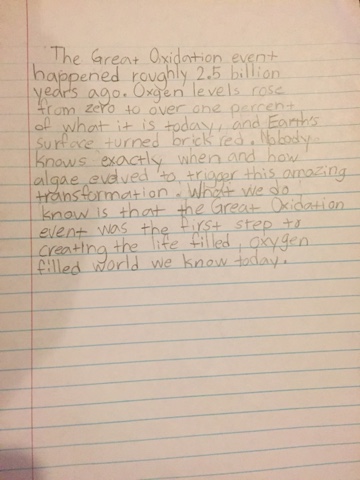 The Great Oxidation event
happened roughly 2.5 billion
years ago. Oxgen levels rose
from zero to over one percent
of what it is today, and Earth's
surface turned brick red. Nobody
knows exactly when and how
algae evolved to trigger this amazing
transformation. What we do
know is that the Great Oxidation
event was the first step to
creating the life filled, oxygen
filled world we know today.